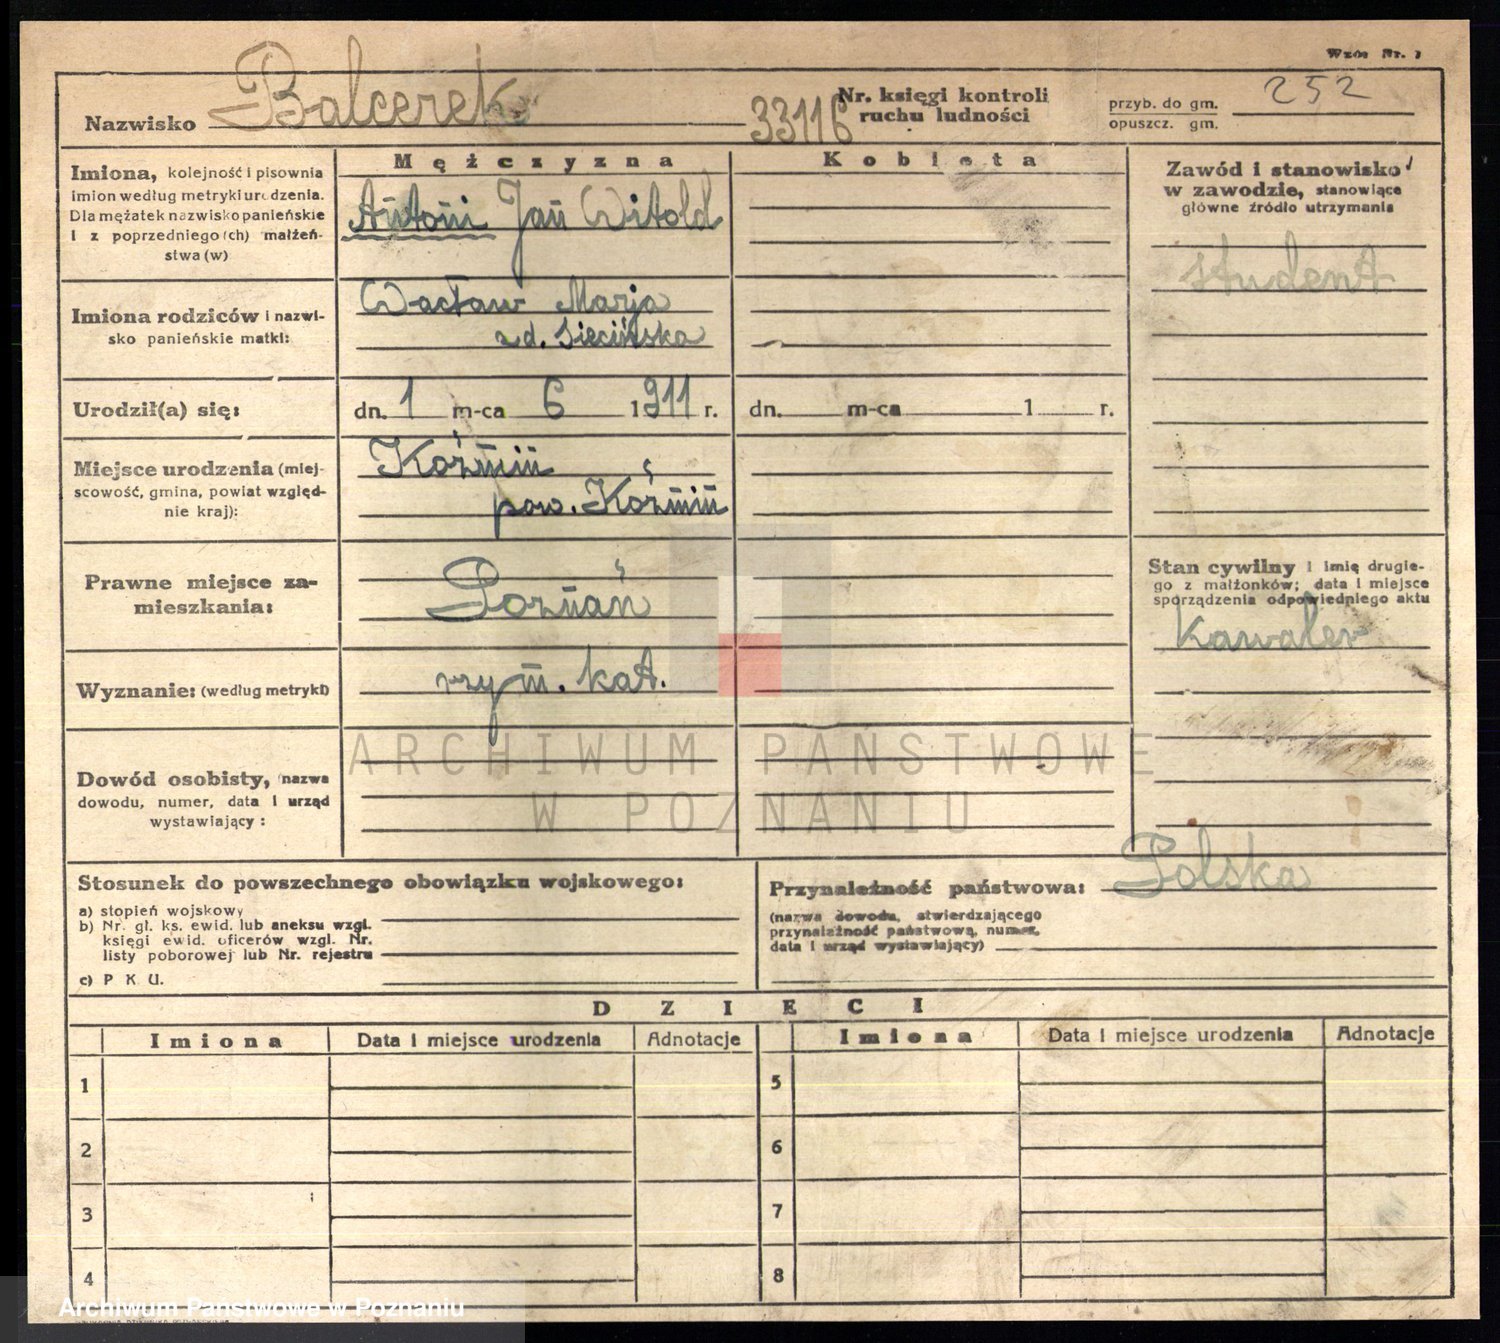 Wzór Nr. 1
Nazwisko Balcerek 33116 Nr. księgi kontroli ruchu ludności przyb. do gm. opuszcz. gm. 252
Mężczyzna Kobieta
Imiona, kolejność i pisownia
imion według metryki urodzenia.
Dla mężatek nazwisko panieńskie
i z poprzedniego (ch) małżeń-
stwa (w)
Antoni Jan Witold
Zawód i stanowisko
w zawodzie, stanowiące
główne źródło utrzymania
student
Imiona rodziców i nazwi-
sko panieńskie matki:
Wacław Marja
z d. Siecińska
Urodził(a) się: dn. 1 m-ca 6 1911 r. dn. m-ca 1 r.
Miejsce urodzenia (miej-
scowość, gmina, powiat względ-
nie kraj):
Koźmin
pow. Koźmin
Prawne miejsce za-
mieszkania:
Poznań
Stan cywilny i imię drugie-
go z małżonków; data i miejsce
sporządzenia odpowiedniego aktu
kawaler
Wyznanie: (według metryki) rzym. kat.
ARCHIWUM PAŃSTWOWE
W POZNANIU
Dowód osobisty, (nazwa
dowodu, numer, data i urząd
wystawiający :
Stosunek do powszechnego obowiązku wojskowego:
a) stopień wojskowy
b) Nr. gł. ks. ewid. lub aneksu wzgl.
księgi ewid. oficerów wzgl. Nr.
listy poborowej lub Nr. rejestru
c) P. K. U.
Przynależność państwowa: Polska
(nazwa dowodu, stwierdzającego
przynależność państwową, numer,
data i urząd wystawiający)
DZIECI
Imiona Data i miejsce urodzenia Adnotacje Imiona Data i miejsce urodzenia Adnotacje
1 5
2 6
3 7
4 8
Archiwum Państwowe w Poznaniu